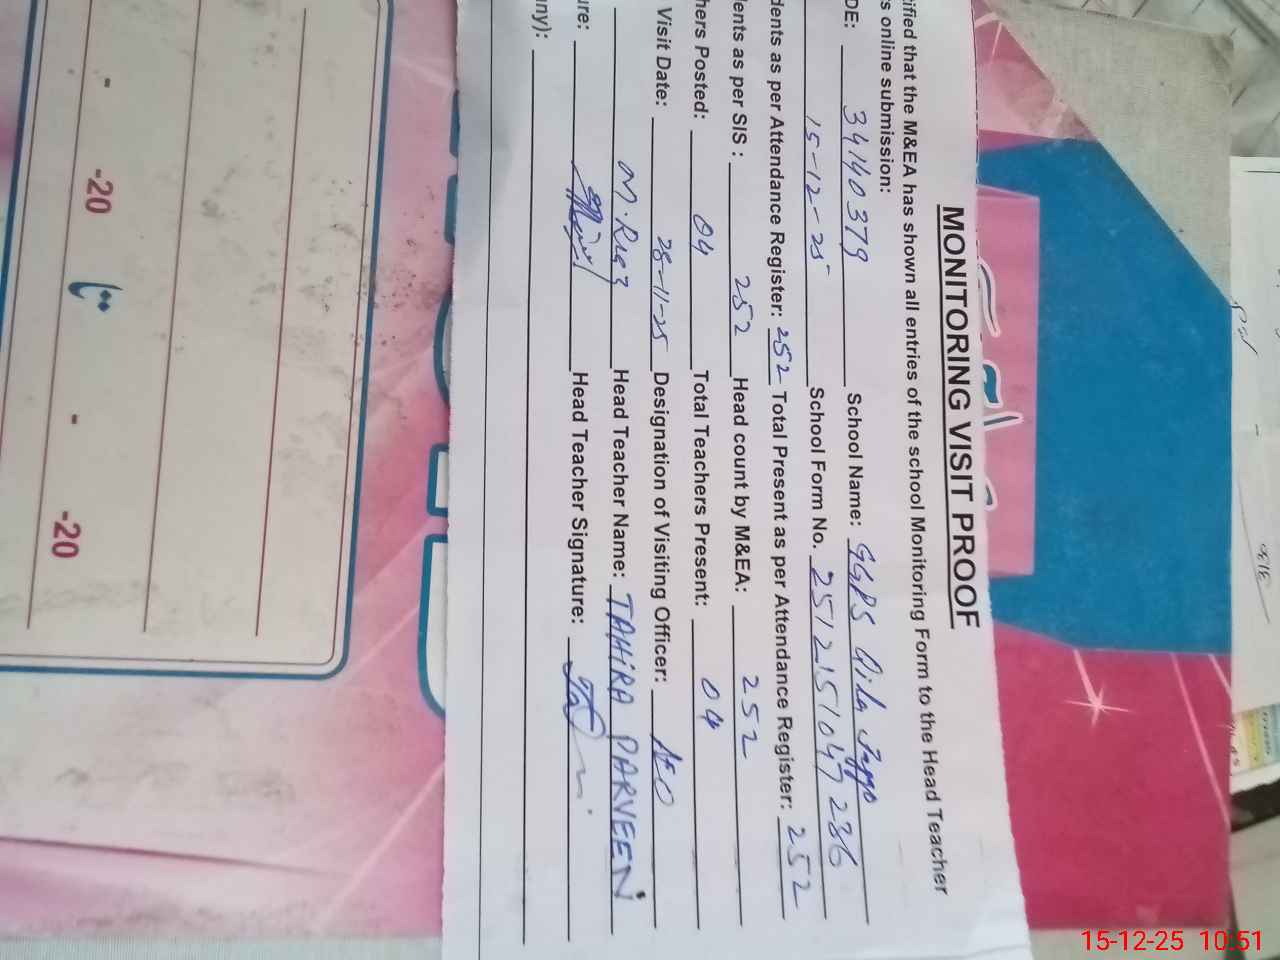 MONITORING VISIT PROOF
ified that the M&EA has shown all entries of the school Monitoring Form to the Head Teacher
s online submission:
DE: 34140379 School Name: GGPS
15-12-25 School Form No. 2512151047236
dents as per Attendance Register: 252 Total Present as per Attendance Register: 252
ents as per SIS : 252 Head count by M&EA: 252
hers Posted: 04 Total Teachers Present: 04
Visit Date: 28-11-25 Designation of Visiting Officer: AEO
M. Riaz Head Teacher Name: TAHIRA PARVEEN
ure: Head Teacher Signature:
ny):
-20
-20
15-12-25 10:51